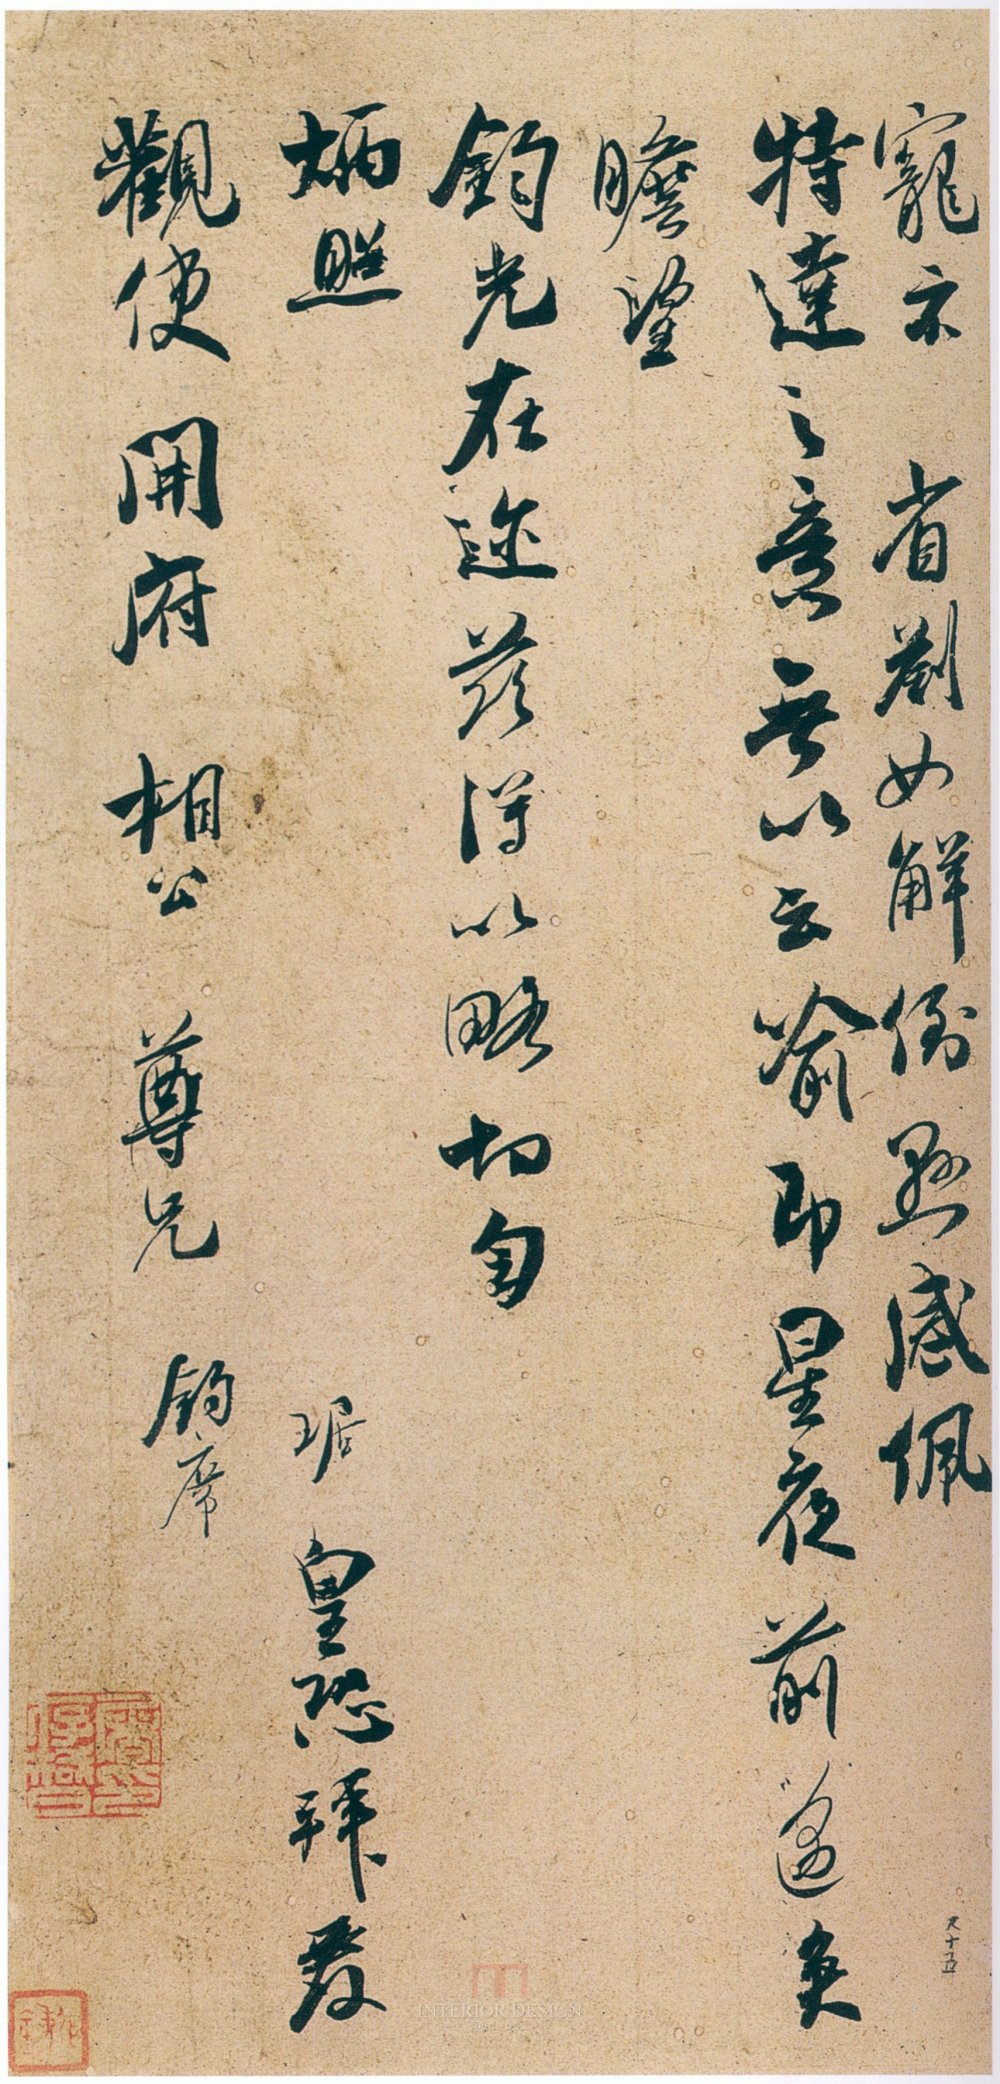 寵示 省劄如解倒懸感佩
特達之意無以云喻即星夜前邁矣
瞻望
鈞光在迩茲得以略切匆
炳照
琚皇恐拜覆
觀使開府相公尊兄鈞席
尺十五
INTERIOR DESIGN